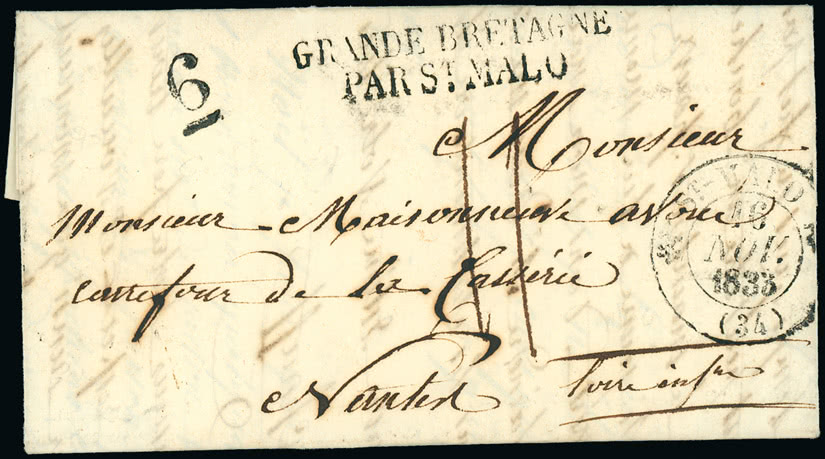 6
GRANDE BRETAGNE
PAR ST MALO
Monsieur
Monsieur Maisonneuve avoué
carrefour de la Casserie
Nantes
Loire infre
ST-MALO
16
NOV.
1833
(34)